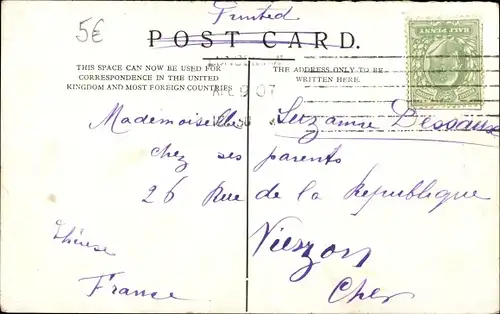 5€
Printed
POST CARD.
THIS SPACE CAN NOW BE USED FOR
CORRESPONDENCE IN THE UNITED
KINGDOM AND MOST FOREIGN COUNTRIES
THE ADDRESS ONLY TO BE
WRITTEN HERE.
HALF PENNY
9 07
Mademoiselle Suzanne
chez ses parents
26 Rue de la Republique
Vierzon
Cher
Thérèse
France